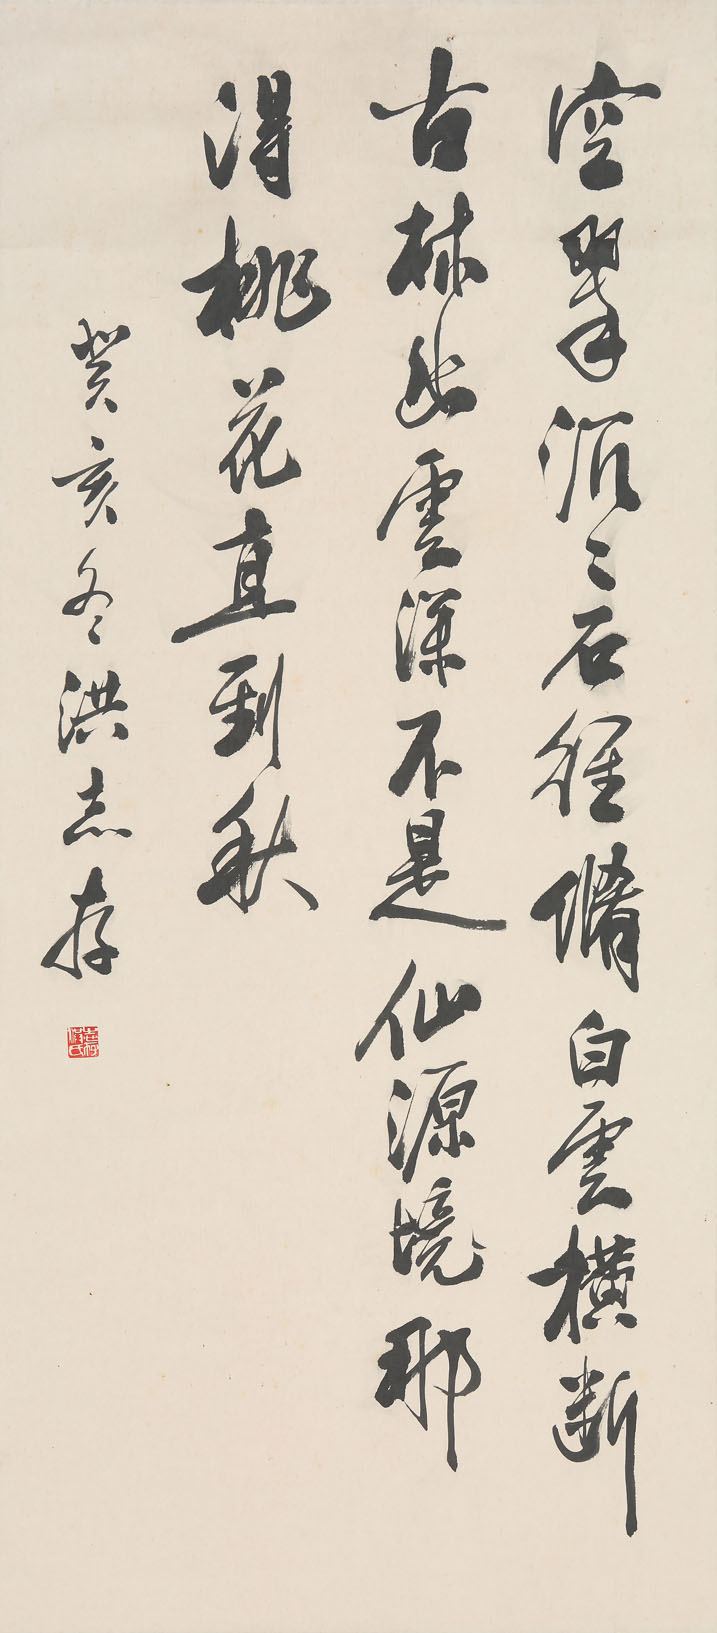 空翠沉々石徑脩白雲橫斷
古林幽雲深不是仙源境那
得桃花直到秋
癸亥冬洪志存